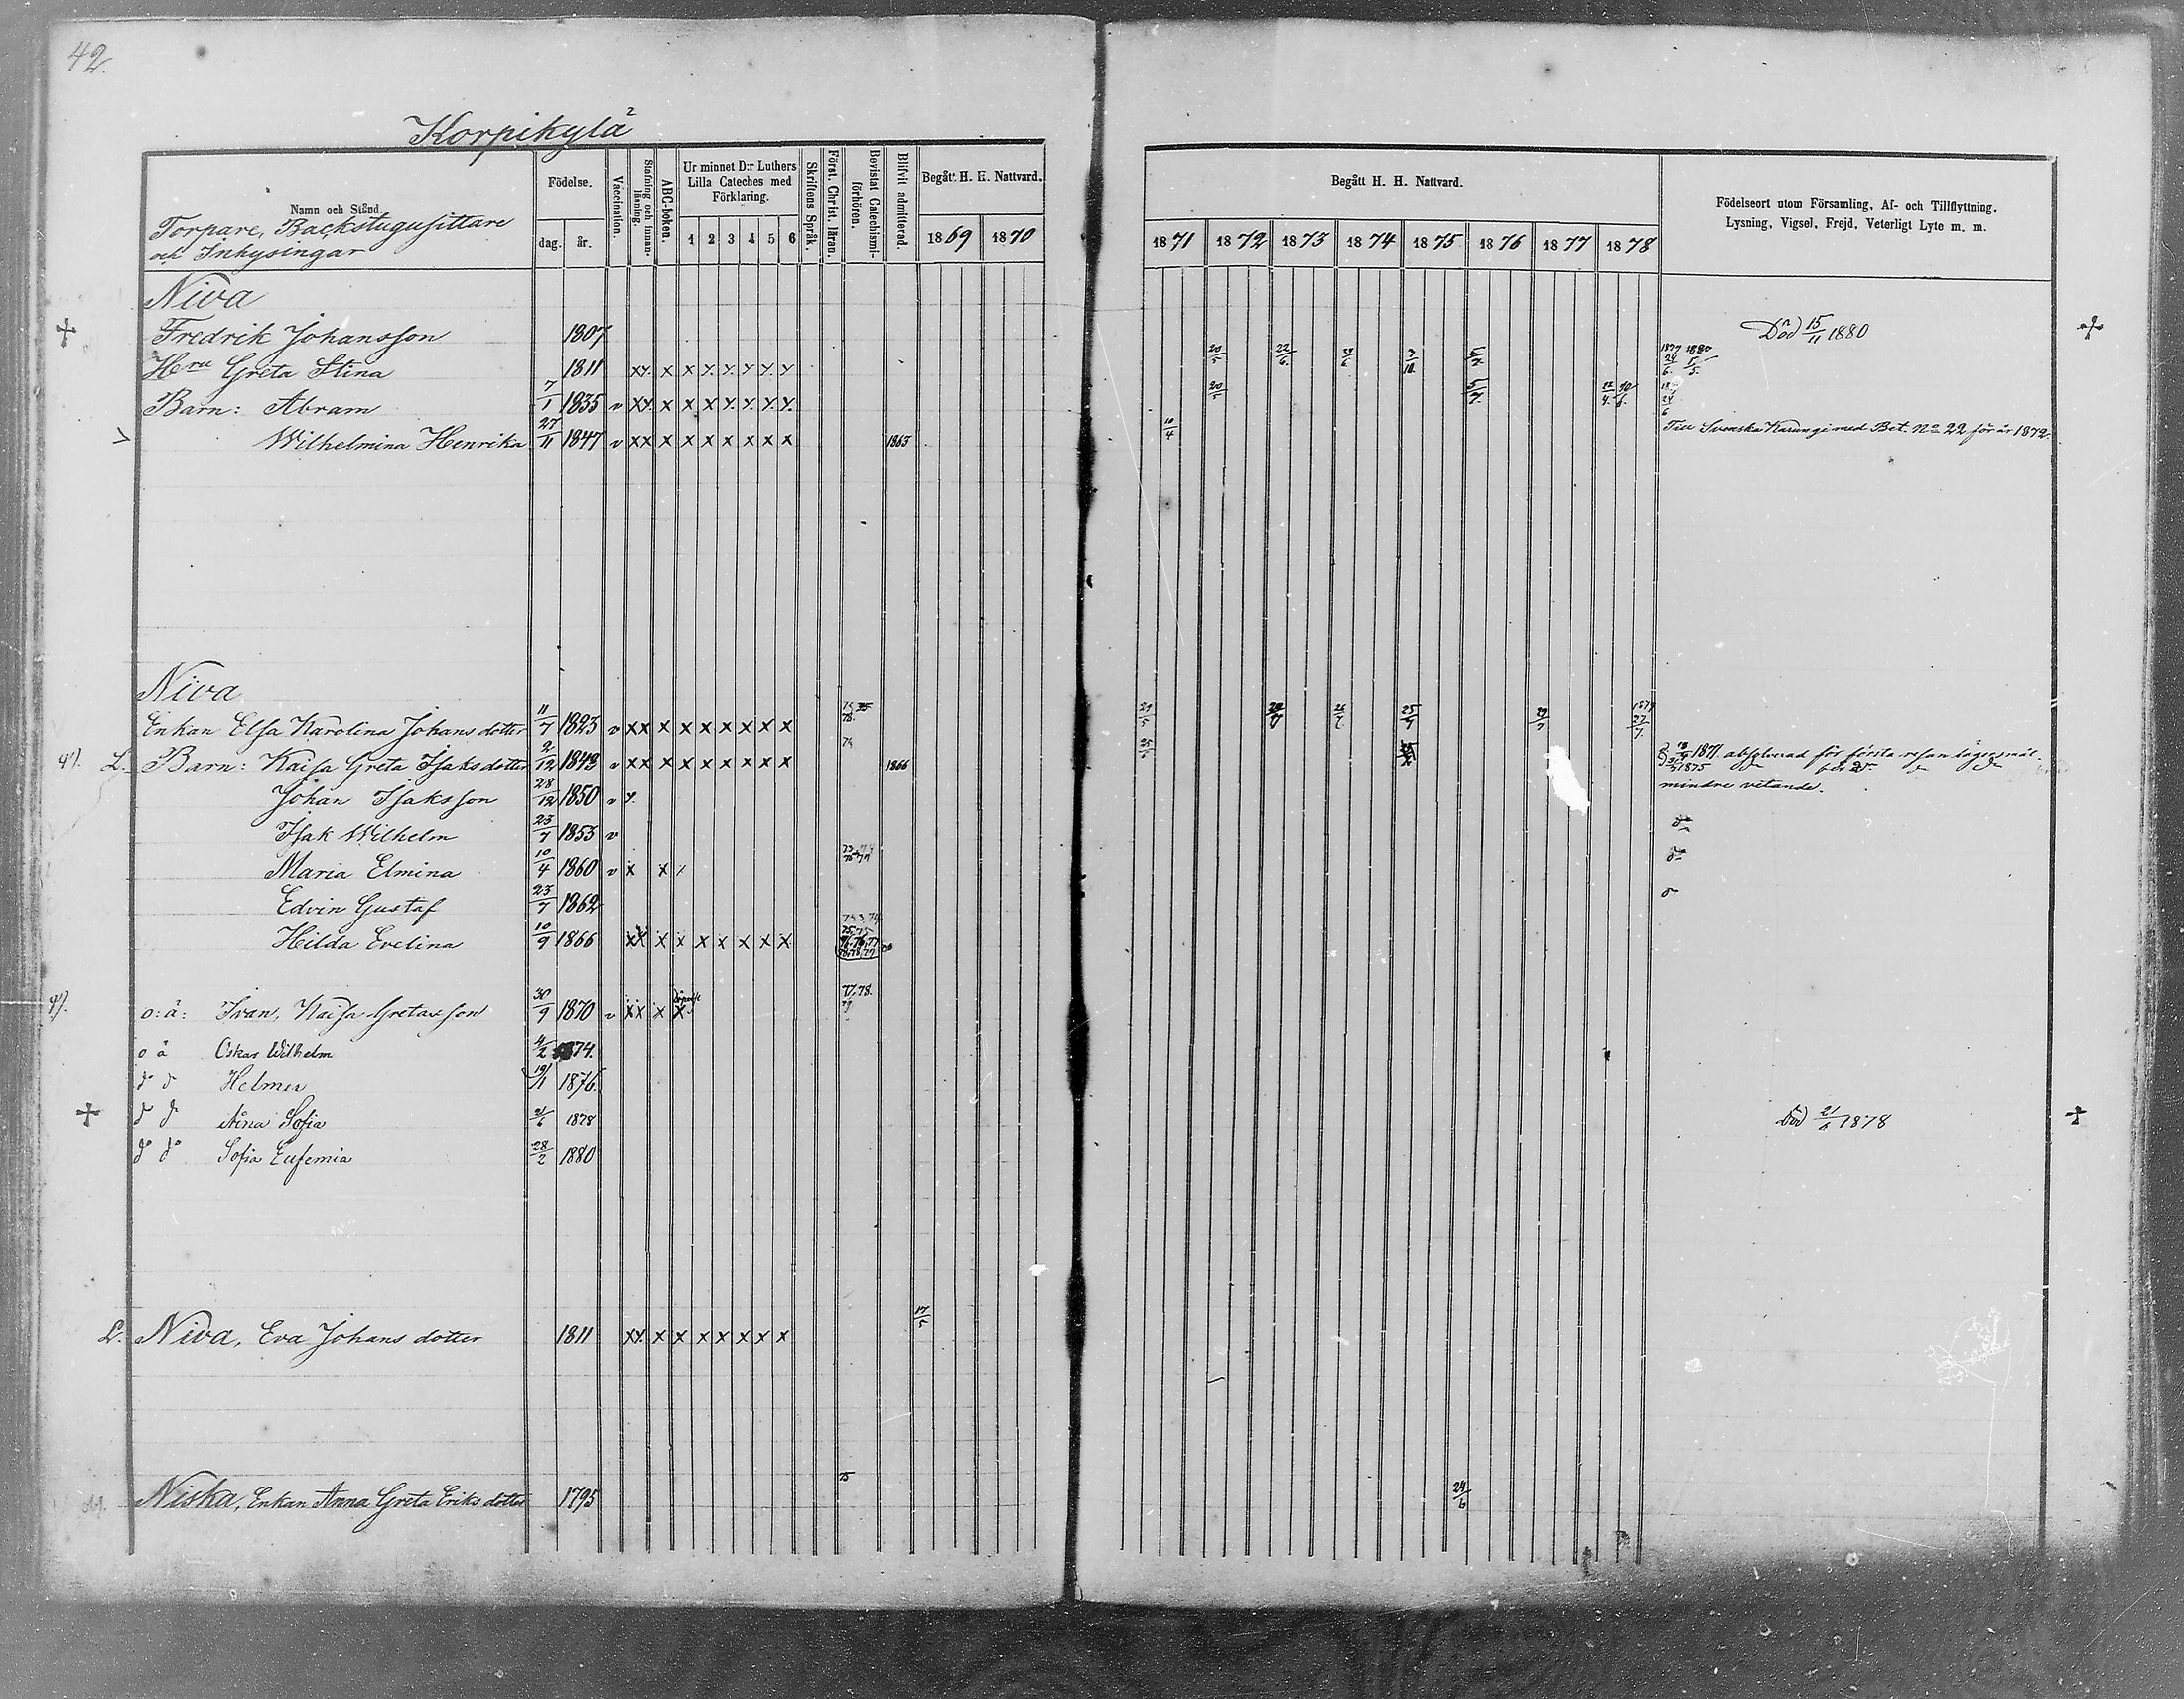 42.
Korpikylä
Namn och Stånd.
Torpare, Backstugusittare
och Inhysingar
Födelse.
dag. år.
Vaccination.
Stafning och innanläsning.
ABC-boken.
Ur minnet D:r Luthers
Lilla Cateches med
Förklaring.
1 2 3 4 5 6
Skriftens Språk.
Först. Christ. läran.
Bevistat Catechismi-
förhören.
Blifvit admitterad.
Begått H. H. Nattvard.
1869 1870
Begått H. H. Nattvard.
1871 1872 1873 1874 1875 1876 1877 1878
Födelseort utom Församling, Af- och Tillflyttning,
Lysning, Vigsel, Frejd, Veterligt Lyte m. m.
Niva
Fredrik Johansson 1807 Död 15/11 1880
Hru Greta Stina 1811 xy x x y y y y y 20/5 22/6
Barn: Abram 7/1 1835 v xy x x x y y y y 20/5 5/7
Wilhelmina Henrika 27/11 1847 v xx x x x x x x x 1865 10/4 Till Svenska Karungi med Bet. No 22 för år 1872.
Niva
Enkan Elsa Karolina Johans dotter 11/7 1823 v xx x x x x x x x 29/5 25/7 27/7
L. Barn: Kaisa Greta Isaks dotter 2/12 1843 v xx x x x x x x x 74 1866 25/5 1871 absolverad för första resan lägersmål.
1875 för 2
Johan Isaksson 28/12 1850 v y. mindre vetande.
Isak Wilhelm 23/7 1853 v do
Maria Elmina 10/4 1860 v x x do
Edvin Gustaf 23/7 1862
Hilda Evelina 10/9 1866 xx x x x x x x x
o:ä: Ivan, Kaisa Gretasson 30/9 1870 v xx x x 77.78.
o ä Oskar Wilhelm 4/2 1874.
do d Helmer 19/1 1876.
d d Anna Sofia 21/6 1878 Död 21/6 1878
do do Sofia Eufemia 28/2 1880
L. Niva, Eva Johans dotter 1811 xy x x x x x x x 17/5
Niska, Enkan Anna Greta Eriks dotter 1795 75 24/6